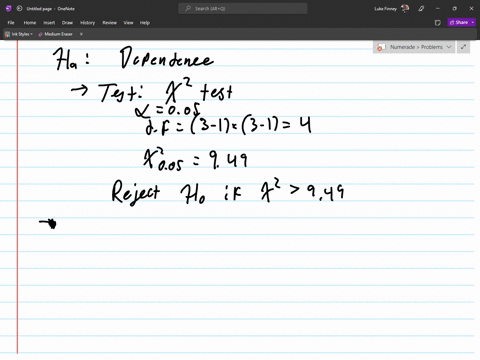 Untitled page - OneNote
Luke Finney
File Home Insert Draw History Review View Help
Share
Ink Styles Medium Eraser
Numerade > Problems
Ha: Dependence
→ Test: X² test
α = 0.05
d.F = (3-1)×(3-1) = 4
X²0.05 = 9.49
Reject H0 if X² > 9.49
→